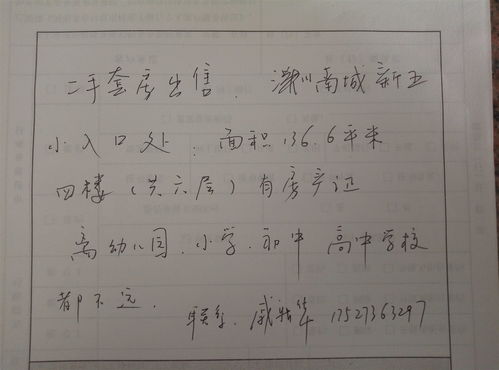 二手套房出售. 潢川南城新五
小入口处. 面积136.6平米
四楼(共六层)有房产证
离幼儿园.小学.初中 高中学校
都不远. 联系. 17527363297